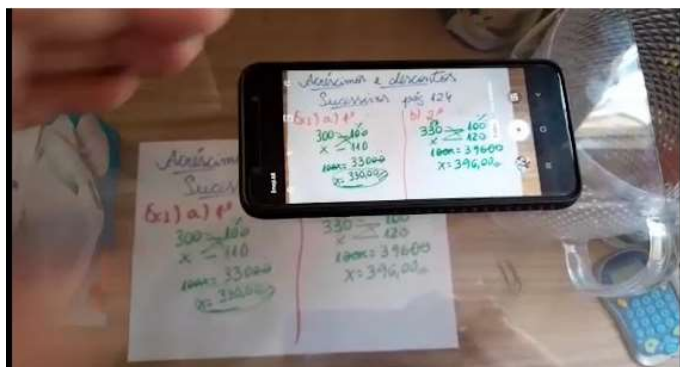 Acréscimos e descontos
Sucessivos pág 124
Ex1) a) 1º
300 100
x 110
100x = 33000
x = 330,00
b) 2º
%
330 100
x 120
100x = 39600
x = 396,00
Acréscim
Suces
Ex1) a) 1º
300 100
x 110
100x = 33000
x = 330,00
330 100
x 120
100x = 39600
x = 396,00